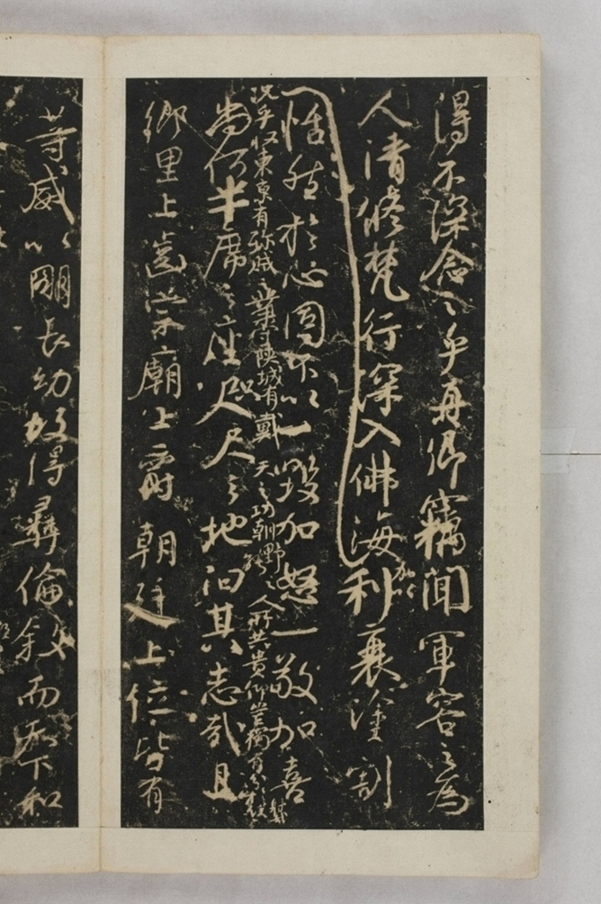 得不深念之乎再卿竊聞軍容之為
人清修梵行深入佛海加以利衰塗割
恬然於心固不以一毀加怒一敬加喜
況乎收東京有殄賊之業守陝城有戴天之功朝野之人所共貴仰豈獨有分於僕射
尚何半席之座咫尺之地汩其志哉且
鄉里上齒宗廟上爵朝廷上位皆有
等威以明長幼故得彝倫敘而天下和